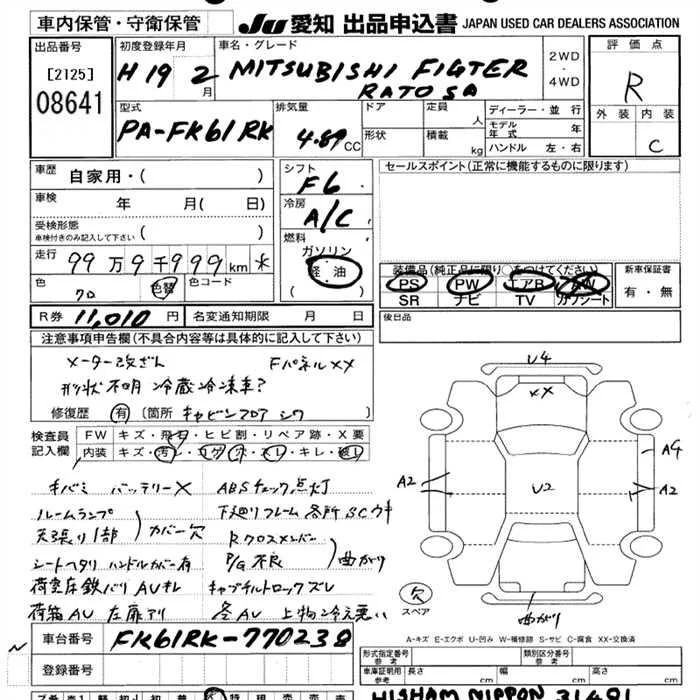 車内保管・守衛保管
JU 愛知 出品申込書 JAPAN USED CAR DEALERS ASSOCIATION
出品番号
[2125]
08641
初度登録年月
H19 2月
車名・グレード
MITSUBISHI FIGTER
RATOSA
2WD
・
4WD
評価点
R
外装 内装
C
型式
PA-FK61RK
排気量
4.89 CC
ドア
形状
定員
人
積載
kg
ディーラー・並行
モデル年式 年
ハンドル 左・右
車歴 自家用・( )
車検 年 月( 日)
受検形態
車検付きのみ記入して下さい ( )
走行 99万9千999km ※
色 クロ 色替 色コード
シフト
F6
冷房
A/C
燃料
ガソリン
軽油
( )
セールスポイント(正常に機能するものに限ります)
装備品(純正品に限り○をつけてください)
PS PW エアB AW
SR ナビ TV カワシート
新車保証書
有・無
R券 11,010円 名変通知期限 月 日
後日品
注意事項申告欄(不具合内容等は具体的に記入して下さい)
メーター改ざん Fパネルxx
形状不明 冷蔵冷凍車?
修復歴 有 [箇所 キャビンフロアシワ ]
検査員
記入欄
FW キズ・飛石・ヒビ割・リペア跡・X要
内装 キズ・汚レ・コゲ・穴・スレ・キレ・破レ
キバミ バッテリーX ABSチェック点灯
ルームランプ
天張り1部 カバー欠
下廻りフレーム各所SCウキ
Rクロスメンバー
P/G不良 曲がり
シートヘタリ ハンドルカバー有
荷室床鉄バリAUキレ キャブチルトロックズレ
荷箱AU 左扉アリ 各AU 上物冷え悪い
U4
XX
A2
U2
A4
A2
欠
スペア
曲がり
A-キズ E-エクボ U-凹み W-補修跡 S-サビ C-腐食 XX-交換済
車台番号 FK61RK-770238
登録番号
形式指定番号
参考
類別区分番号
参考
車庫証明用
参考
長さ cm 幅 cm 高さ cm
HISHAM NIPPON 31401